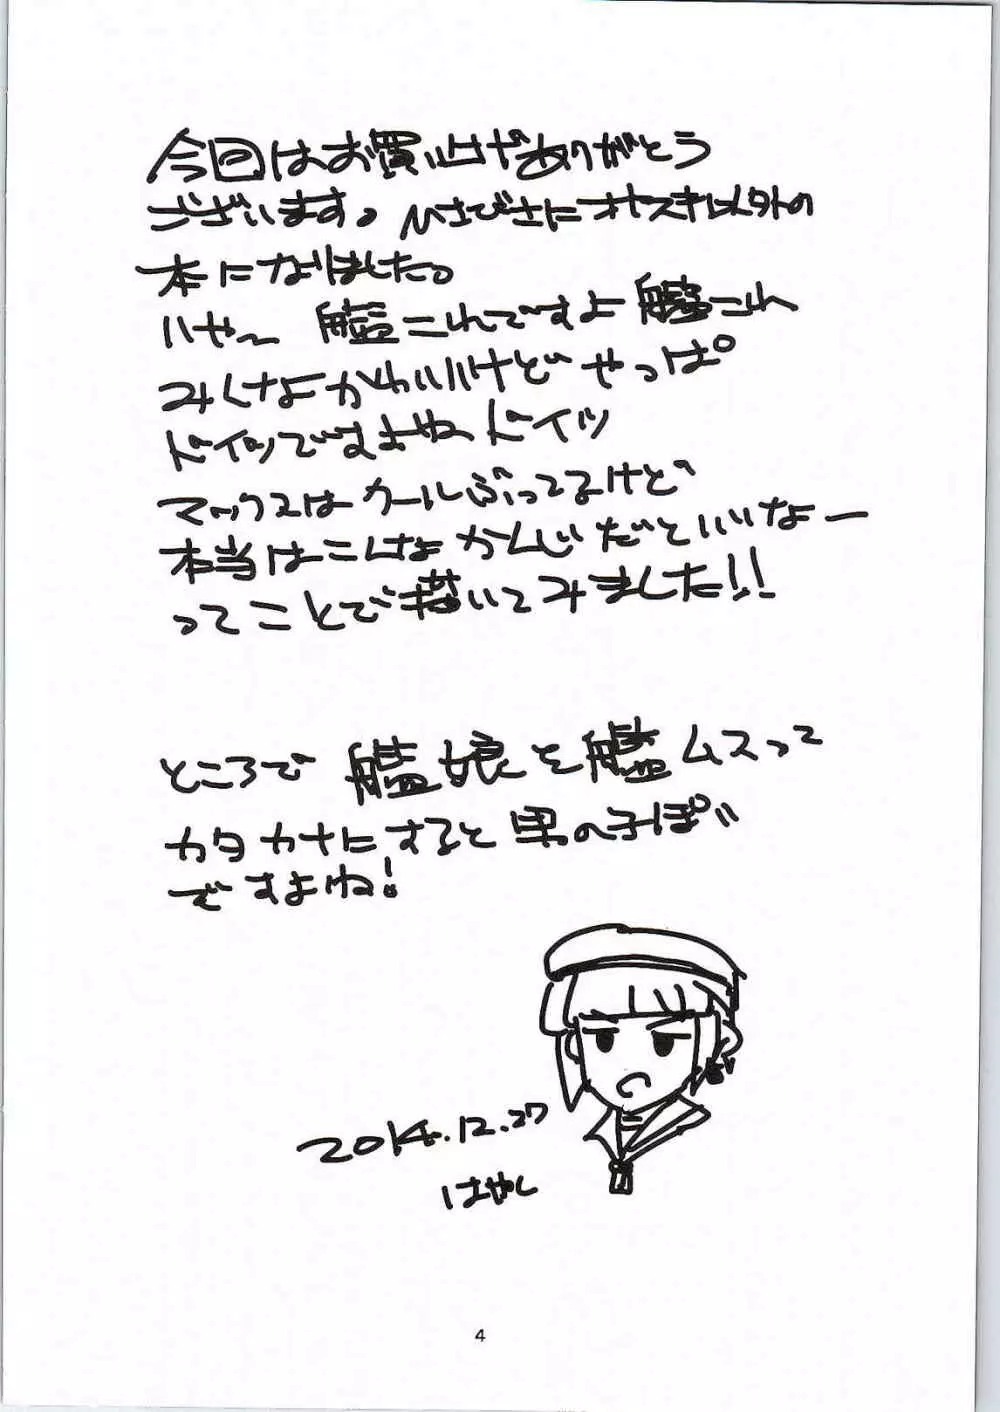 今回はお買い上げありがとう
ございます。ひさびさにオヤスキ以外の
本になりました。
いや〜 艦これですよ艦これ
みんなかわいいけどやっぱ
ドイツですよねドイツ
マックスはクールぶってるけど
本当はこんなかんじだといいなー
ってことで描いてみました!!
ところで艦娘を艦ムスって
カタカナにすると男の子ぽい
ですよね!
2014.12.27
はやし
4